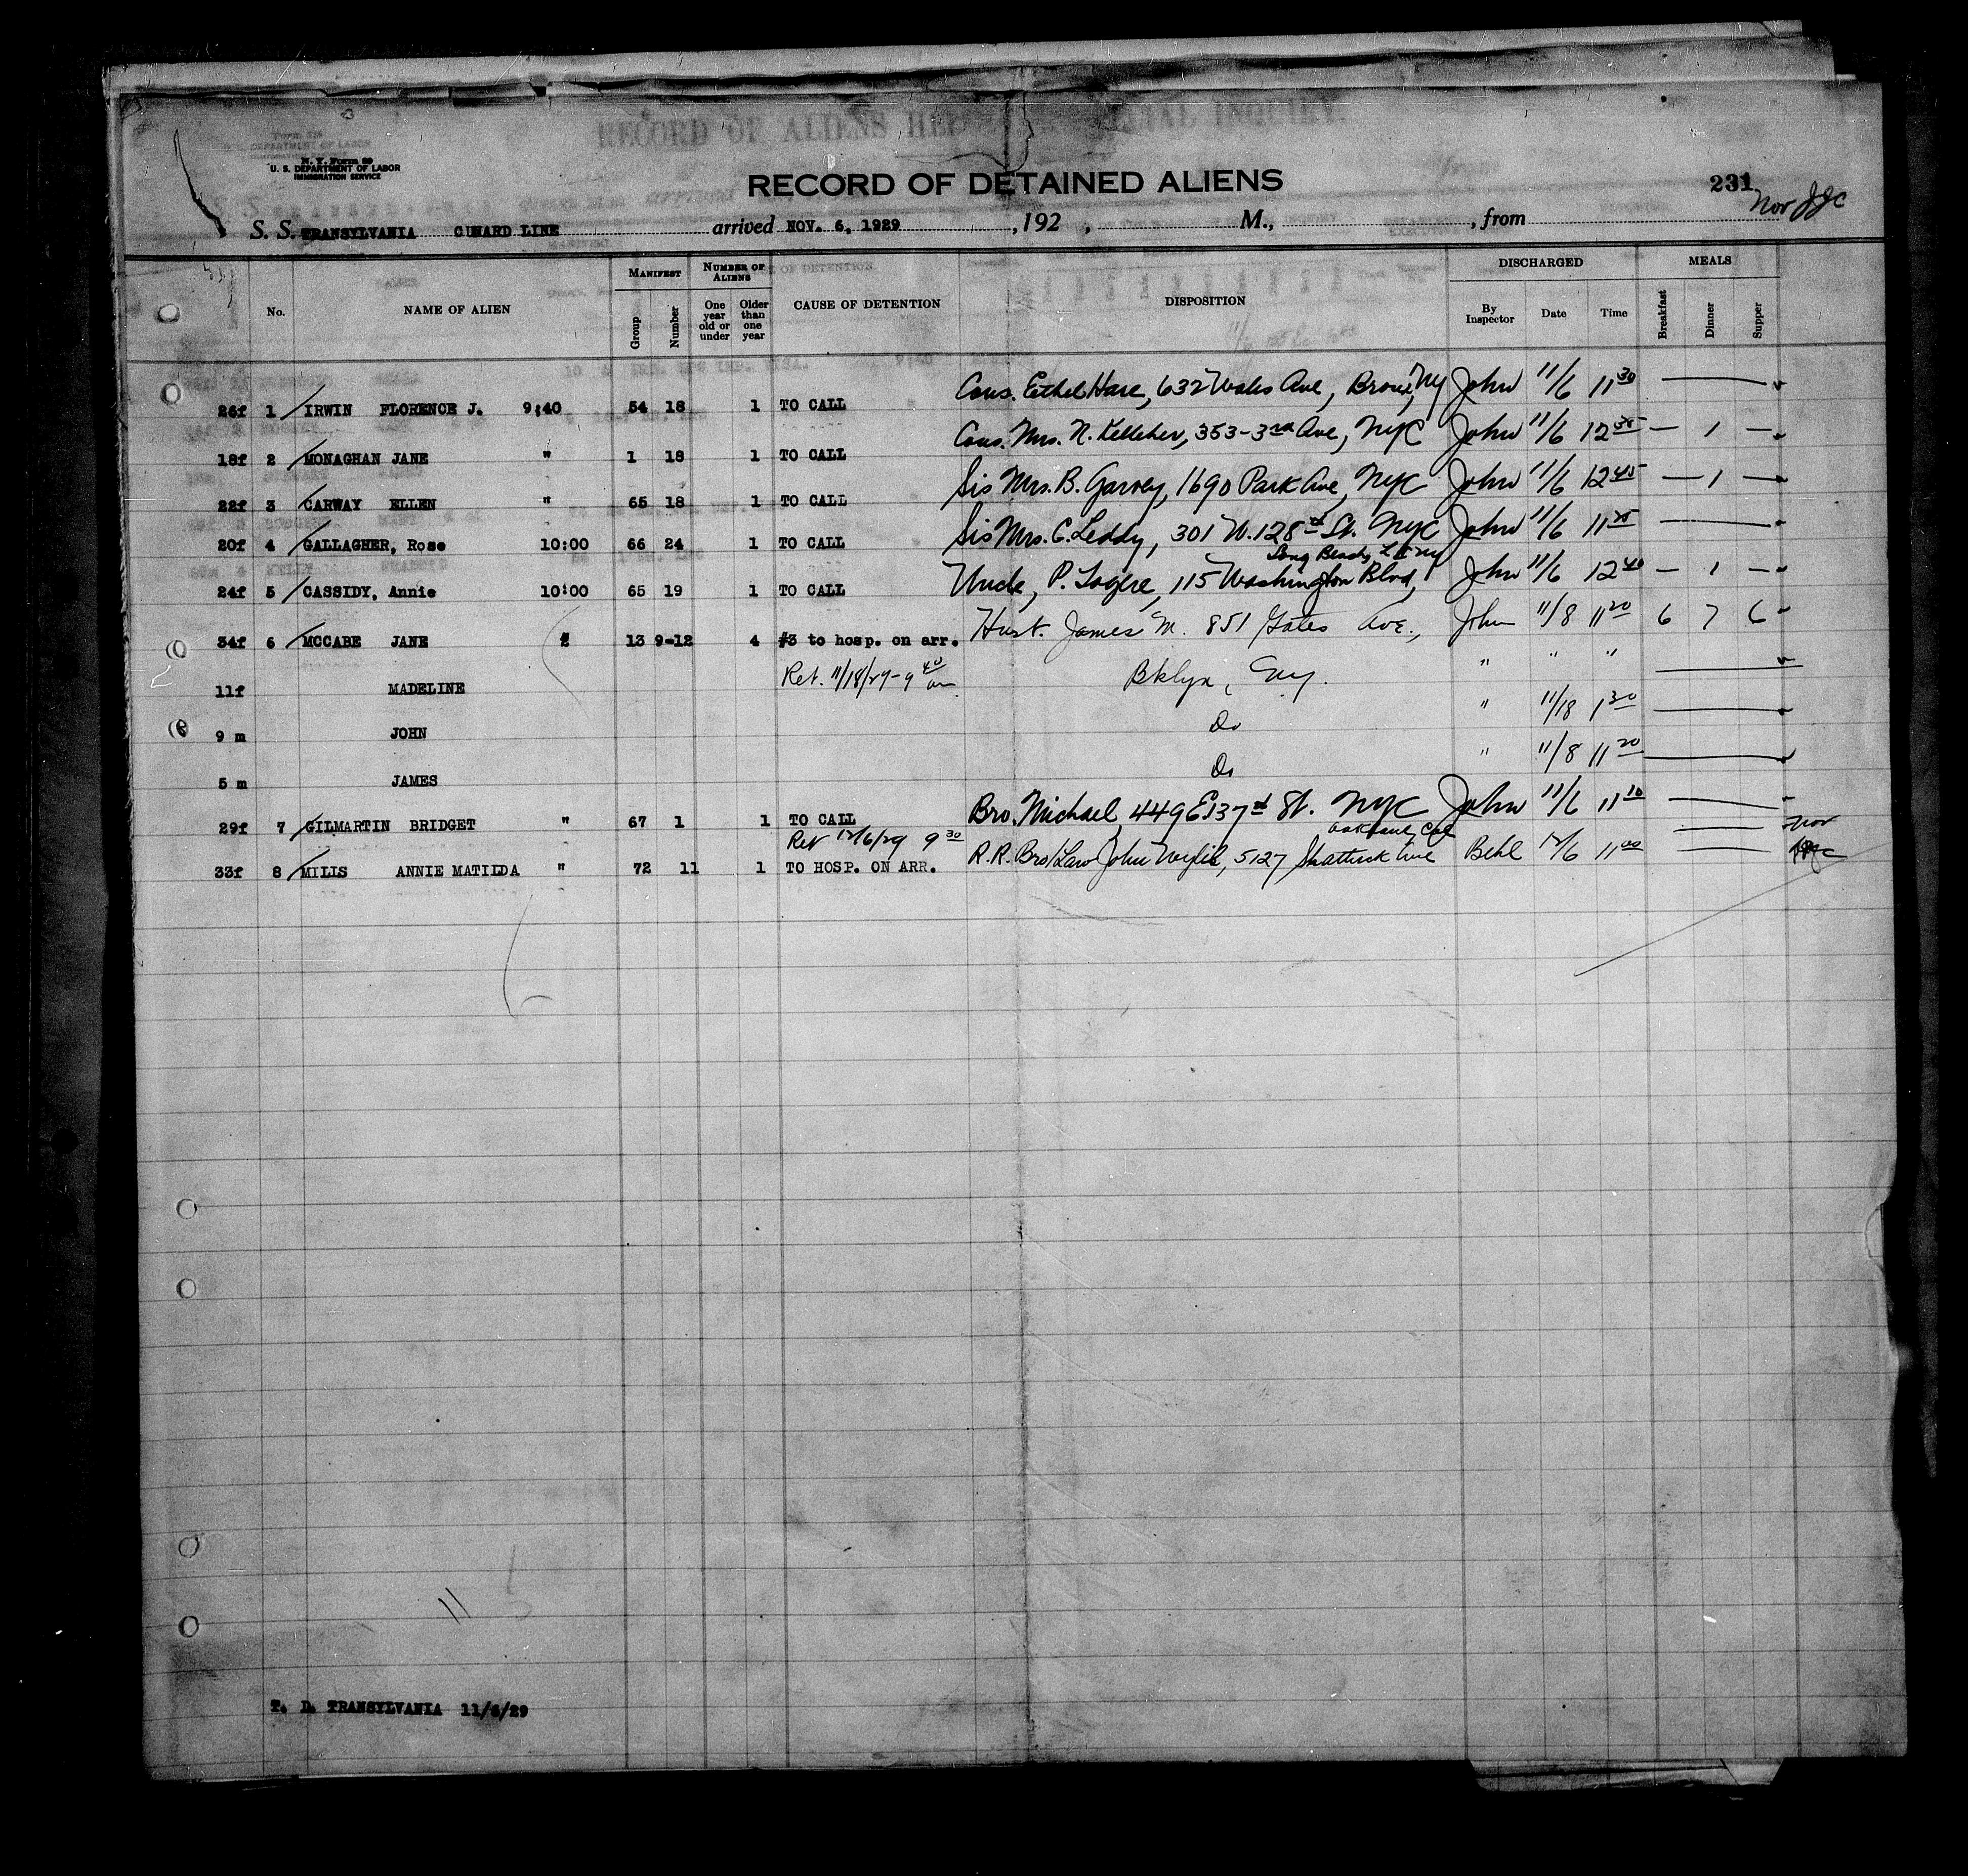 N. Y. Form 89
U. S. DEPARTMENT OF LABOR
IMMIGRATION SERVICE
RECORD OF DETAINED ALIENS
231
Nov JJC
S. S. TRANSYLVANIA CUNARD LINE arrived NOV. 6, 1929 , 192 , M., , from
No. NAME OF ALIEN MANIFEST Group Number NUMBER OF ALIENS One year old or under Older than one year CAUSE OF DETENTION DISPOSITION DISCHARGED By Inspector Date Time MEALS Breakfast Dinner Supper
26f 1 IRWIN FLORENCE J. 9:40 54 18 1 TO CALL Cous. Ethel Hare, 632 Wales Ave, Bronx, NY John 11/6 11 30
18f 2 MONAGHAN JANE " 1 18 1 TO CALL Cous. Mrs. N. Kelleher, 353-3rd Ave, NYC John 11/6 12 35 — 1 —
22f 3 CARWAY ELLEN " 65 18 1 TO CALL Sis Mrs. B. Garvey, 1690 Park Ave, NYC John 11/6 12 45 — 1 —
20f 4 GALLAGHER, Rose 10:00 66 24 1 TO CALL Sis Mrs. C. Leddy, 301 W. 128th St. NYC John 11/6 11 25
Long Beach, L I NY
24f 5 CASSIDY, Annie 10:00 65 19 1 TO CALL Uncle, P. 115 Washington Blvd, John 11/6 12 40 — 1 —
34f 6 MCCABE JANE " 13 9-12 4 #3 to hosp. on arr. Hust. James M. 851 Gates Ave., John 11/8 11 20 6 7 6
11f MADELINE Ret. 11/18/29-9 40 am Bklyn, NY. " " "
9 m JOHN Do " 11/18 1 30
5 m JAMES Do " 11/8 11 20
29f 7 GILMARTIN BRIDGET " 67 1 1 TO CALL Bro. Michael, 449 E 137th St. NYC John 11/6 11 10
Ret 12/6/29 9 30 Oakland, Cal Nov
33f 8 MILIS ANNIE MATILDA " 72 11 1 TO HOSP. ON ARR. R.R. Bro/Law John Wylie, 5127 Shattuck Ave Behl 12/6 11 00
11
T. D. TRANSYLVANIA 11/6/29